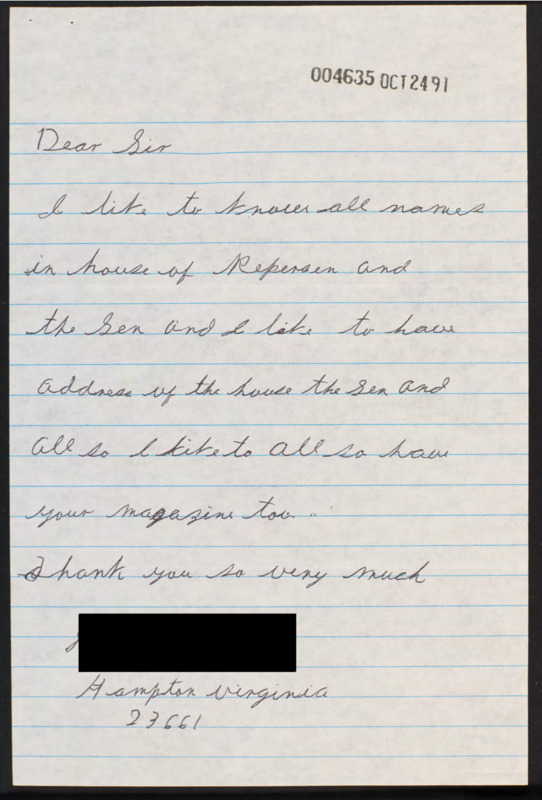 004635 OCT 24 91
Dear Sir
I like to know all names
in house of Repersen and
the Sen and I like to have
address of the house the Sen and
all so I like to all so have
your magazine too..
Thank you so very much
Hampton Virginia
23661